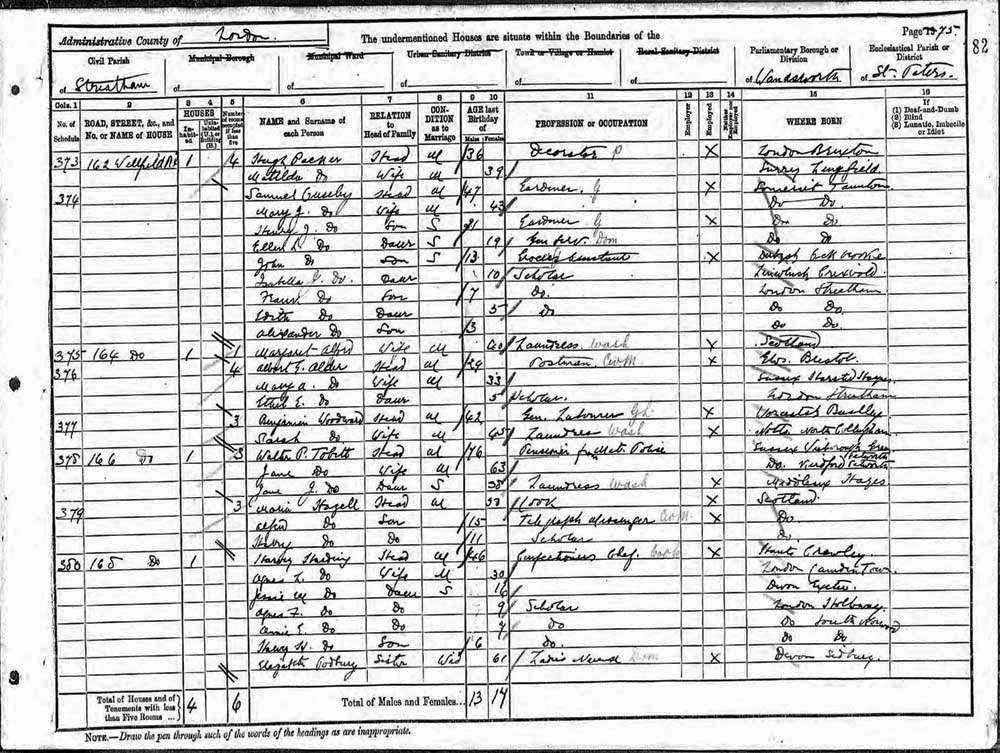 Administrative County of London. The undermentioned Houses are situate within the Boundaries of the Page 75
82
Civil Parish Municipal Borough Municipal Ward Urban Sanitary District Town or Village or Hamlet Rural Sanitary District Parliamentary Borough or Division Ecclesiastical Parish or District
of Streatham of of of of of of Wandsworth of St. Peters.
Cols. 1 2 3 4 5 6 7 8 9 10 11 12 13 14 15 16
No. of Schedule ROAD, STREET, &c., and No. or NAME of HOUSE HOUSES Inhabited Uninhabited (U.), or Building (B.) Number of rooms occupied if less than five NAME and Surname of each Person RELATION to Head of Family CONDITION as to Marriage AGE last Birthday of Males Females PROFESSION or OCCUPATION Employer Employed Neither Employer nor Employed WHERE BORN If (1) Deaf-and-Dumb (2) Blind (3) Lunatic, Imbecile or Idiot
373 162 1 4 Hugh Packer Head M 36 P X London Brixton
Matilda Do Wife M 39 Surrey Lingfield
374 Samuel Head M 47 Gardner G X Somerset Taunton
Mary J. Do Wife M 43 Do Do
Henry J. Do Son S 21 Gardner G X Do Do
Ellen Do Daur S 19 Gen Serv Dom Do Do
John Do Son S 13 Grocers Assistant X
Isabella J. Do Daur 10 Scholar
Frank Do Son 7 Do London Streatham
Edith Do Daur 5 Do Do Do
Alexander Do Son 3 Do Do
375 164 Do 1 1 Margaret Alford Wife M 40 Laundress Wash X Scotland
376 4 Albert E. Alder Head M 29 Postman X Glos. Bristol
Mary A. Do Wife M 33 Sussex
Ethel E. Do Daur 5 Scholar London Streatham
377 3 Benjamin Woodward Head M 42 Gen. Labourer X Worcester
Sarah Do Wife M 45 Laundress Wash X Notts North Collingham
378 166 Do 1 3 Walter P. Head M 76 Pensioner fm Met. Police Sussex
Jane Do Wife M 63 Do
Jane J. Do Daur S Laundress Wash X Middlesex Hayes
379 3 Maria Head M Cook X Scotland
Alfred Do Son 15 Telegraph Messenger X Do
Harry Do Do 11 Scholar
380 168 Do 1 Harvey Harding Head M 46 Confectioners X Hants Crawley
Agnes L. Do Wife M 30 London Camden Town
Jessie M Do Daur S 16 Devon Exeter
Agnes F. Do Do 9 Scholar London Holloway
Annie E. Do Do Do Do South Norwood
Harry W. Do Son 6 Do. Do Do.
Elizabeth Sister Wid 61 Ladies X Devon Sidbury
Total of Houses and of Tenements with less than Five Rooms ... 4 6 Total of Males and Females... 13 17
NOTE.—Draw the pen through such of the words of the headings as are inappropriate.